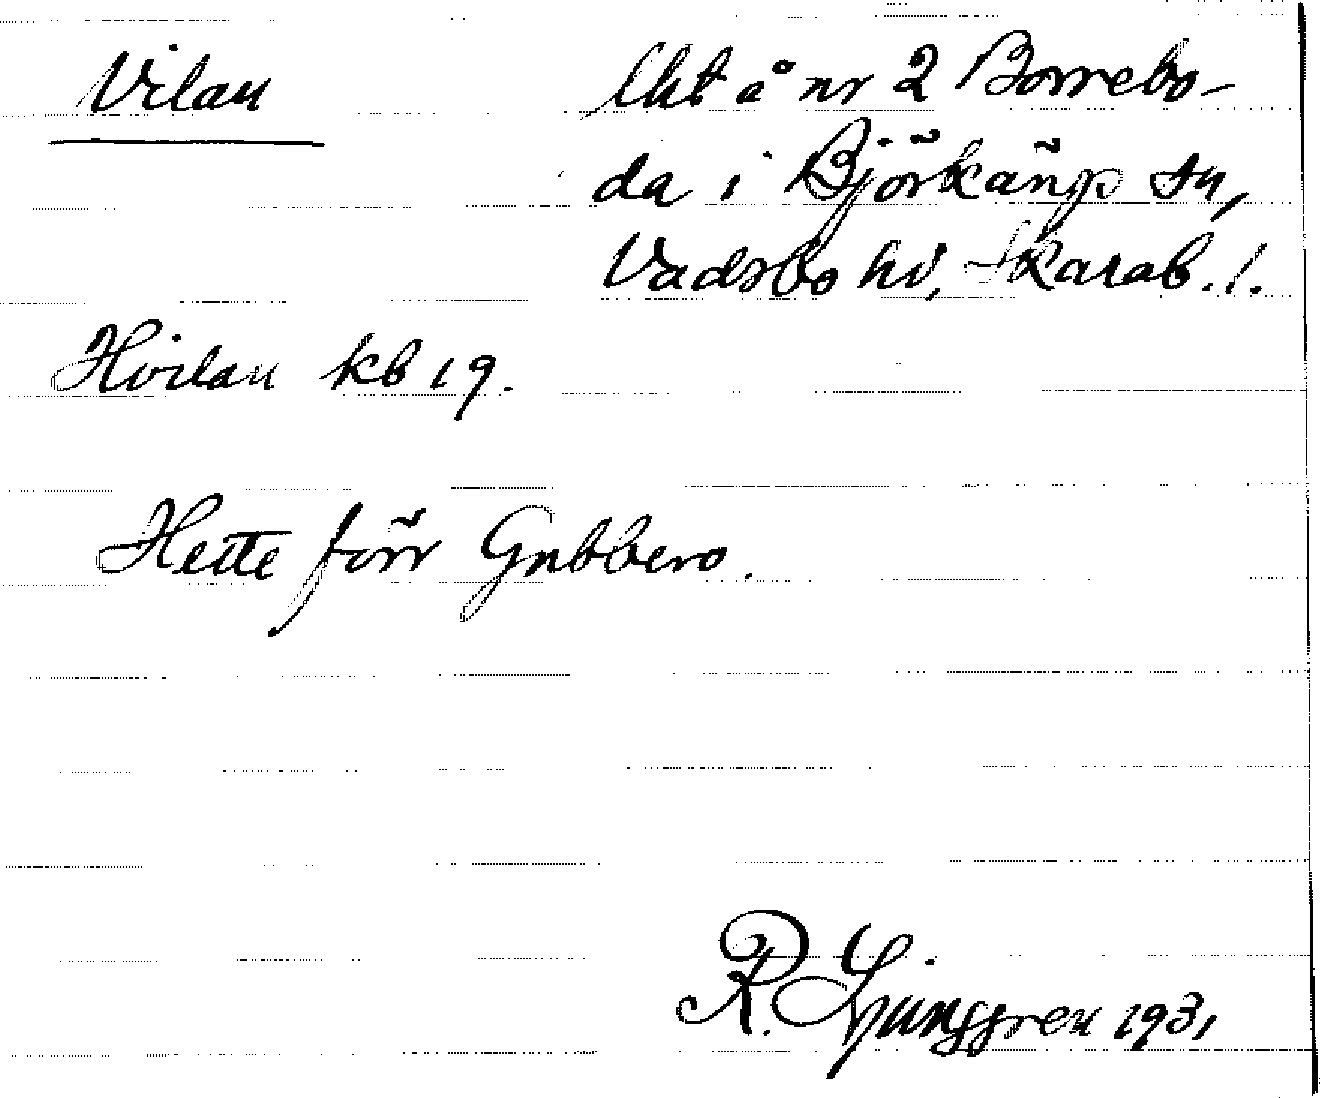 Vilan
lht å nr 2 Borrebo-
da i Björkäng sn,
Vadsbo hd, Skarab. l.
Hvilan kb 19.
Hette förr Gubbero.
R. Ljunggren 1931